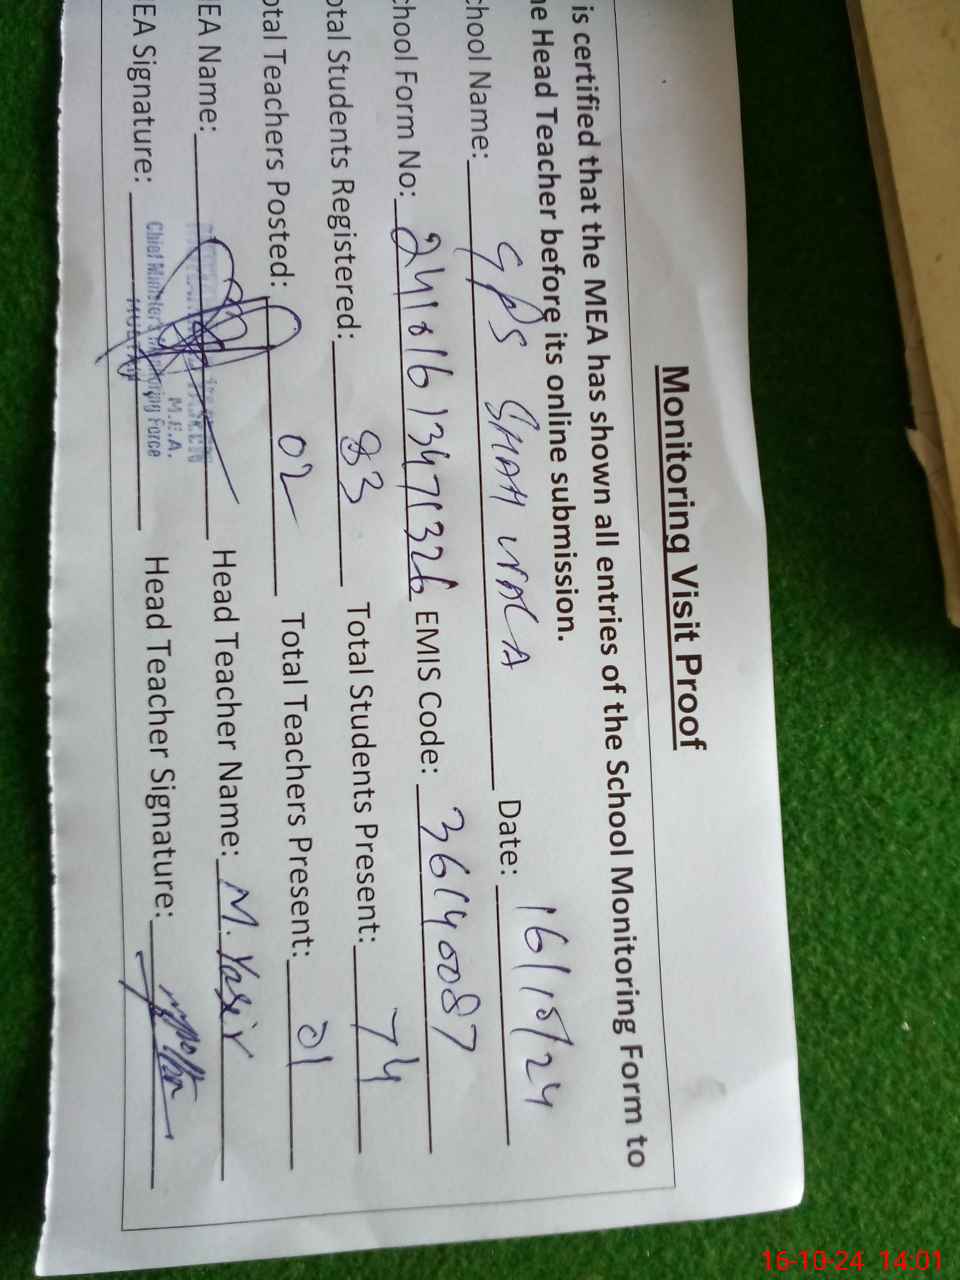 Monitoring Visit Proof
is certified that the MEA has shown all entries of the School Monitoring Form to
he Head Teacher before its online submission.
chool Name: GPS SHAH WALA Date: 16/10/24
chool Form No: 2410161347326 EMIS Code: 36140087
otal Students Registered: 83 Total Students Present: 74
otal Teachers Posted: 02 Total Teachers Present: 01
EA Name: Head Teacher Name: M. Yasir
M.E.A.
Chief Minister's Monitoring Force
EA Signature: Head Teacher Signature:
16-10-24 14:01